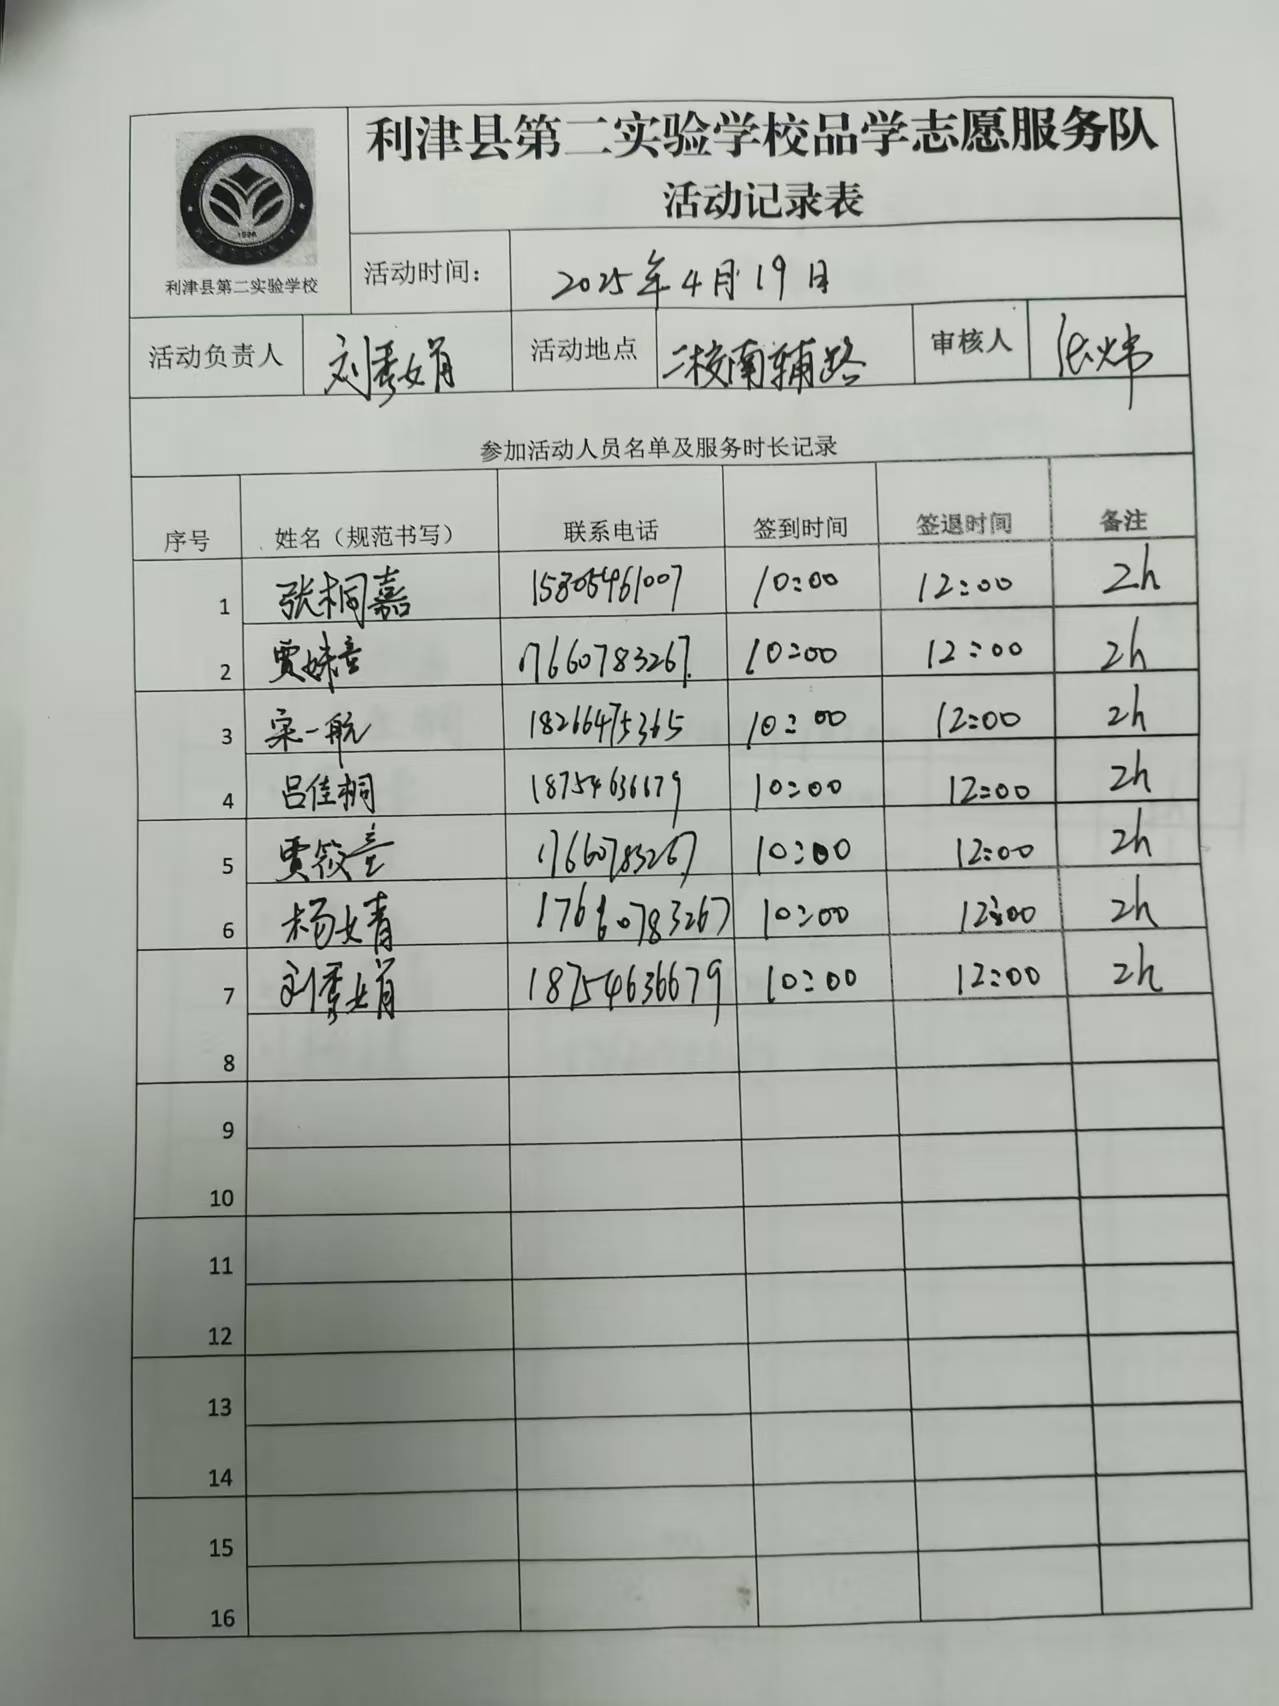 利津县第二实验学校品学志愿服务队
活动记录表
1996
利津县第二实验学校
活动时间： 2025年4月19日
活动负责人 刘秀娟 活动地点 二校南辅路 审核人 张炜
参加活动人员名单及服务时长记录
序号 姓名（规范书写） 联系电话 签到时间 签退时间 备注
1 张桐嘉 15805461007 10:00 12:00 2h
2 贾姝童 17660783267 10:00 12:00 2h
3 宋一航 18266475365 10:00 12:00 2h
4 吕佳桐 18754636679 10:00 12:00 2h
5 贾筱童 17660783267 10:00 12:00 2h
6 杨文青 17660783267 10:00 12:00 2h
7 刘秀娟 18754636679 10:00 12:00 2h
8
9
10
11
12
13
14
15
16